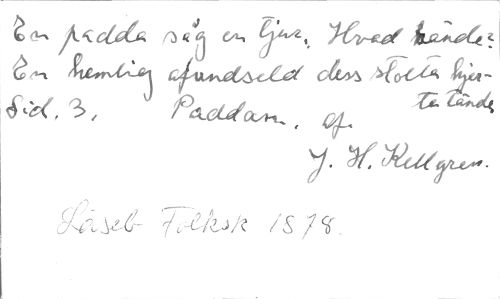 En padda såg en tjur. Hvad hände?
En hemlig afundseld dess stolta hjer-
ta tände
Sid. 3, Paddan, af
J. H. Kellgren.
Läseb Folksk 1878.